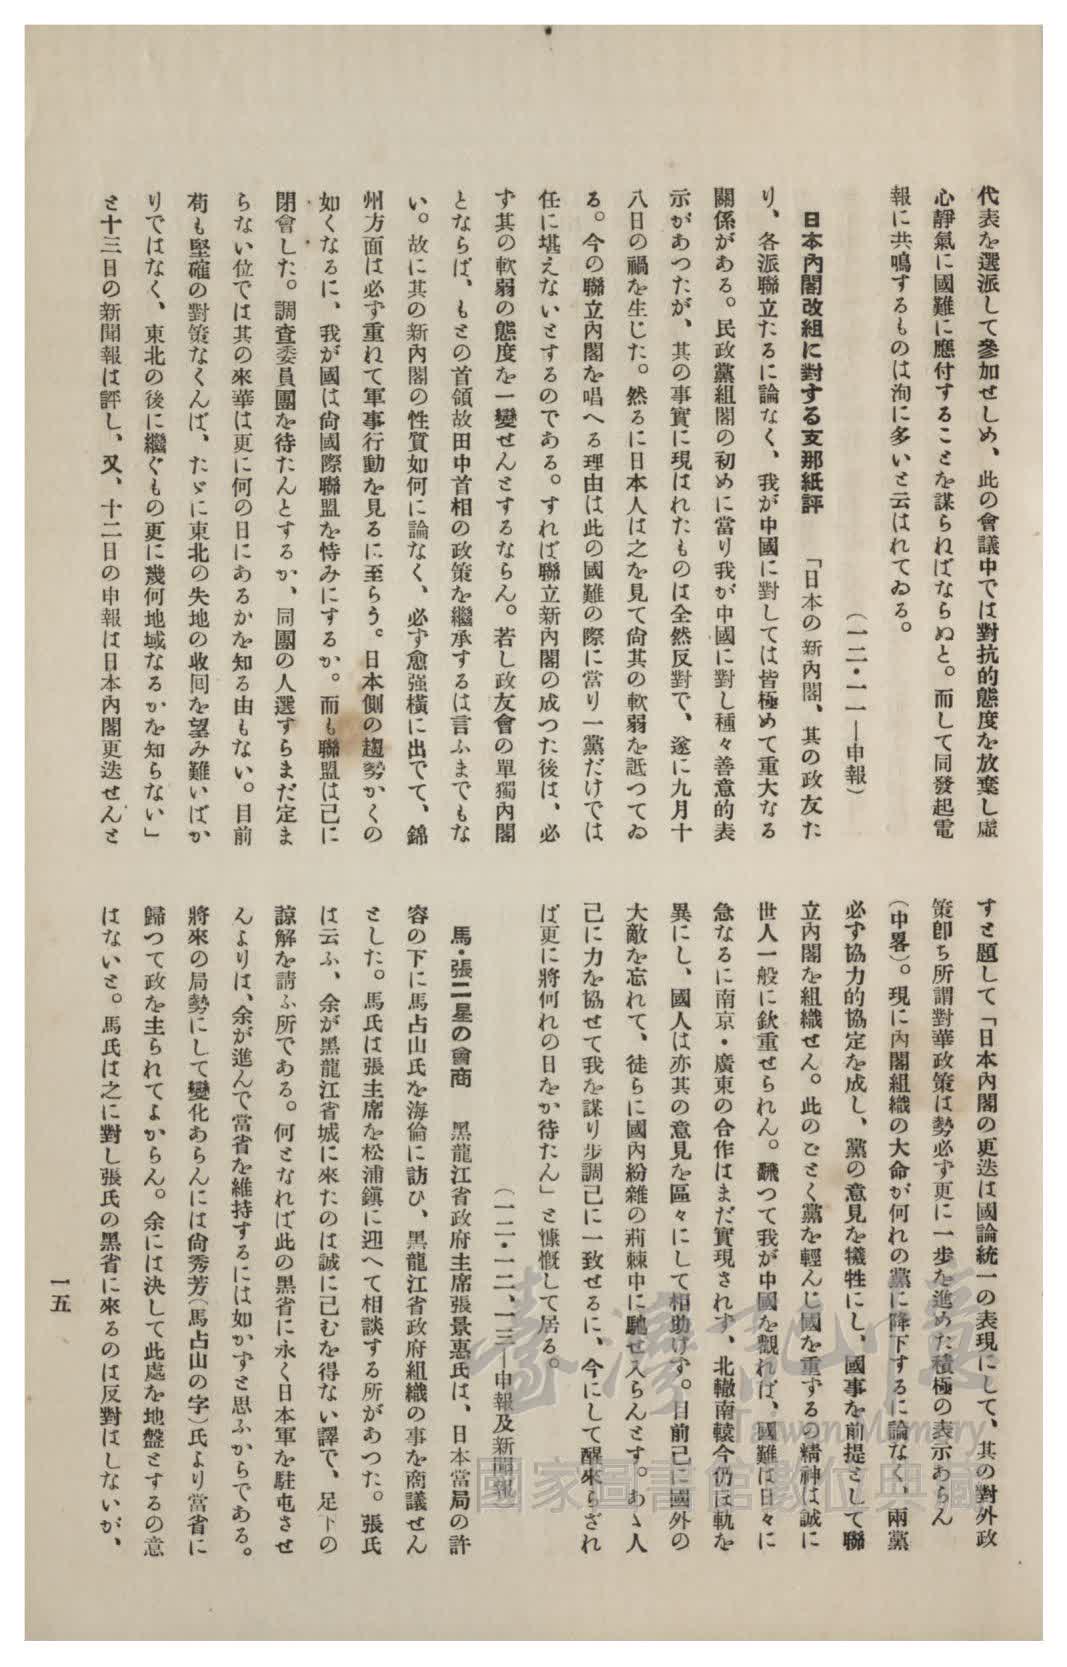 代表を選派して參加せしめ、此の會議中では對抗的態度を放棄し虛
心靜氣に國難に應付することを謀らねばならぬと。而して同發起電
報に共鳴するものは洵に多いと云はれてゐる。
（一二・一一―申報）
日本內閣改組に對する支那紙評　「日本の新內閣、其の政友た
り、各派聯立たるに論なく、我が中國に對しては皆極めて重大なる
關係がある。民政黨組閣の初めに當り我が中國に對し種々善意的表
示があつたが、其の事實に現はれたものは全然反對で、遂に九月十
八日の禍を生じた。然るに日本人は之を見て尙其の軟弱を詆つてゐ
る。今の聯立內閣を唱へる理由は此の國難の際に當り一黨だけでは
任に堪えないとするのである。すれば聯立新內閣の成つた後は、必
ず其の軟弱の態度を一變せんとするならん。若し政友會の單獨內閣
とならば、もとの首領故田中首相の政策を繼承するは言ふまでもな
い。故に其の新內閣の性質如何に論なく、必ず愈强橫に出でて、錦
州方面は必ず重ねて軍事行動を見るに至らう。日本側の趨勢かくの
如くなるに、我が國は尙國際聯盟を恃みにするか。而も聯盟は已に
閉會した。調査委員團を待たんとするか、同團の人選すらまだ定ま
らない位では其の來華は更に何の日にあるかを知る由もない。目前
苟も堅確の對策なくんば、たゞに東北の失地の收回を望み難いばか
りではなく、東北の後に繼ぐもの更に幾何地域なるかを知らない」
と十三日の新聞報は評し、又、十二日の申報は日本內閣更迭せんと
すと題して「日本內閣の更迭は國論統一の表現にして、其の對外政
策卽ち所謂對華政策は勢必ず更に一步を進めた積極の表示あらん
（中畧）。現に內閣組織の大命が何れの黨に降下するに論なく、兩黨
必ず協力的協定を成し、黨の意見を犧牲にし、國事を前提として聯
立內閣を組織せん。此のごとく黨を輕んじ國を重ずるの精神は誠に
世人一般に欽重せられん。飜つて我が中國を觀れば、國難は日々に
急なるに南京・廣東の合作はまだ實現されず、北轍南轅今仍ほ軌を
異にし、國人は亦其の意見を區々にして相助けず。目前已に國外の
大敵を忘れて、徒らに國內紛雜の荊棘中に馳せ入らんとす。あゝ人
已に力を協せて我を謀り步調已に一致せるに、今にして醒來らざれ
ば更に將何れの日をか待たん」と慷慨して居る。
（一二・一二、一三―申報及新聞報）
馬・張二星の會商　黑龍江省政府主席張景惠氏は、日本當局の許
容の下に馬占山氏を海倫に訪ひ、黑龍江省政府組織の事を商議せん
とした。馬氏は張主席を松浦鎭に迎へて相談する所があつた。張氏
は云ふ、余が黑龍江省城に來たのは誠に已むを得ない譯で、足下の
諒解を請ふ所である。何となれば此の黑省に永く日本軍を駐屯させ
んよりは、余が進んで當省を維持するには如かずと思ふからである。
將來の局勢にして變化あらんには尙秀芳（馬占山の字）氏より當省に
歸つて政を主られてよからん。余には決して此處を地盤とするの意
はないと。馬氏は之に對し張氏の黑省に來るのは反對はしないが、
一五
臺灣記憶
Taiwan Memory
國家圖書館數位典藏